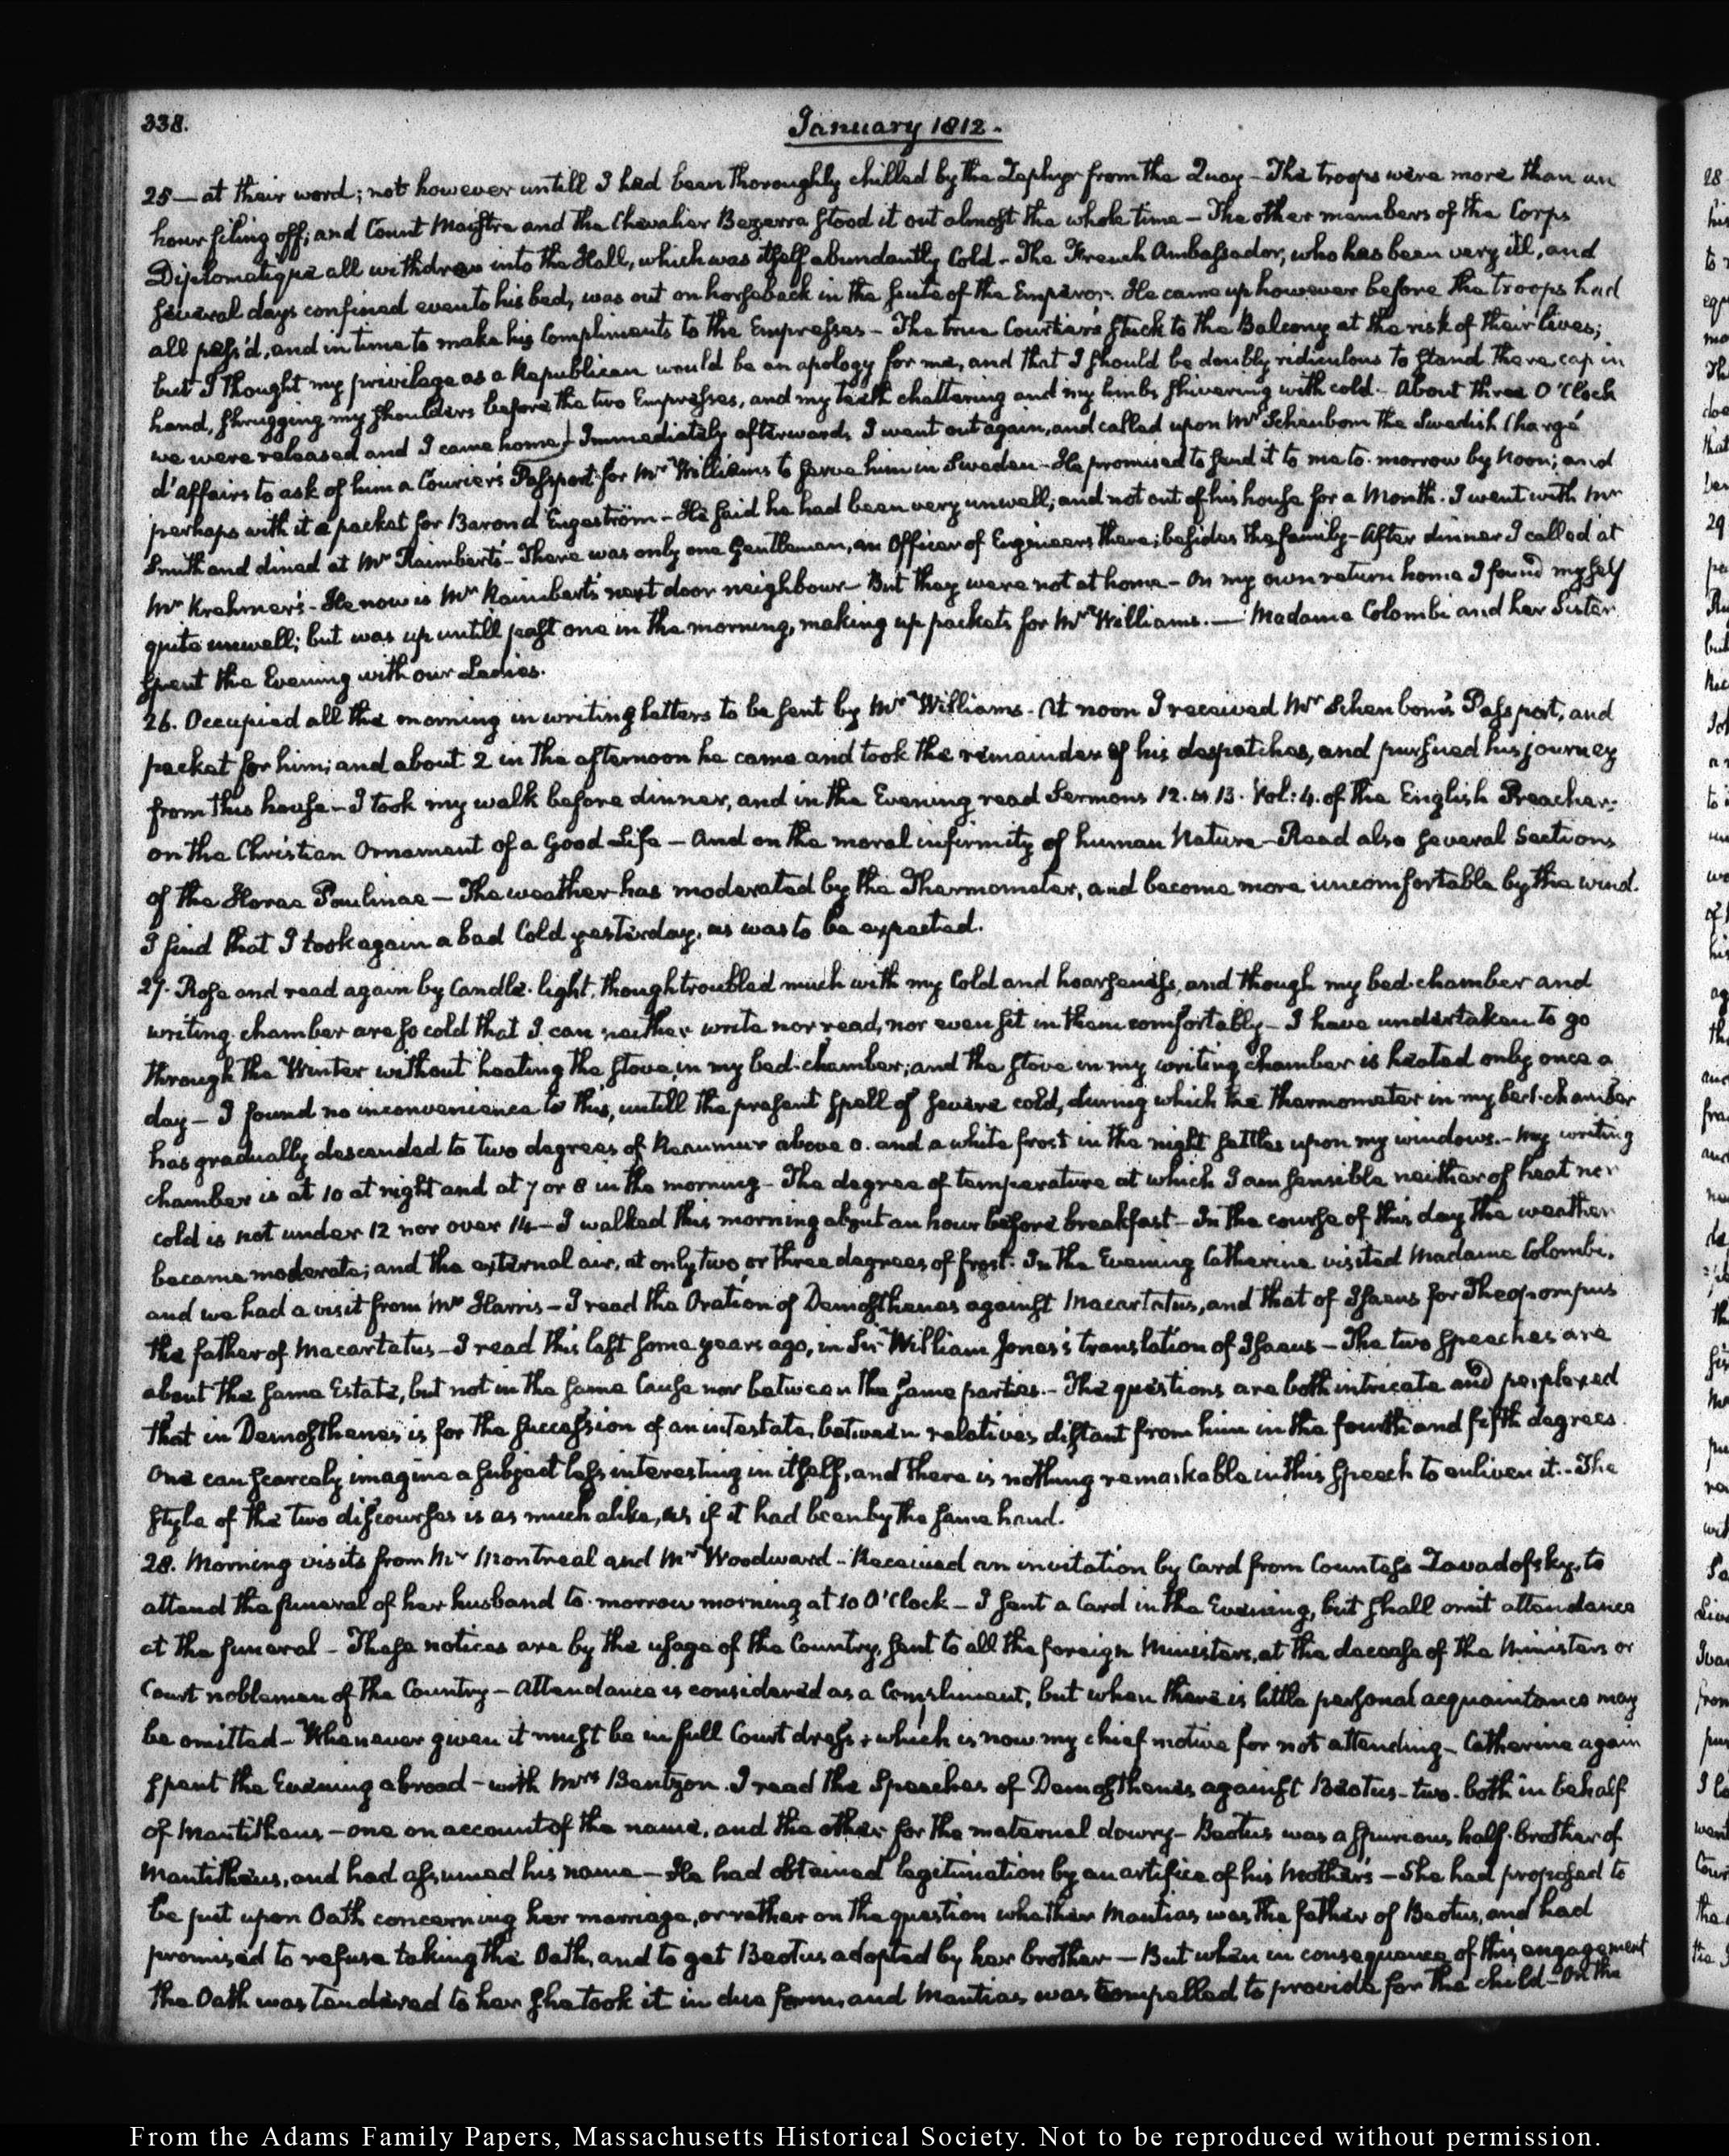 338.
January 1812.
25 — at their word; not however untill I had been thoroughly chilled by the Zephyr from the Quay — The troops were more than an
hour filing off; and Count Maistre and the Chevalier Bezerra stood it out almost the whole time — The other members of the Corps
Diplomatique all withdrew into the Hall, which was itself abundantly Cold — The French Ambassador, who has been very ill, and
several days confined even to his bed, was out on horseback in the suite of the Emperor. He came up however before the troops had
all pass'd, and in time to make his Compliments to the Empresses — The true Courtiers stuck to the Balcony at the risk of their lives;
but I thought my privilege as a Republican would be an apology for me, and that I should be doubly ridiculous to stand there cap in
hand, shrugging my shoulders before the two Empresses, and my teeth chattering and my limbs shivering with cold — About three O'Clock
we were released and I came home — Immediately afterwards I went out again, and called upon Mr Schenbom the Swedish Chargé
d'affairs to ask of him a Courier's Passport for Mr Williams to serve him in Sweden — He promised to send it to me to-morrow by Noon; and
perhaps with it a packet for Baron d'Engeström — He said he had been very unwell; and not out of his house for a Month. I went with Mr
Smith and dined at Mr Raimbert's — There was only one Gentleman, an Officer of Engineers there; besides the family — After dinner I called at
Mr Krehmer's — He now is Mr Raimbert's next door neighbour — But they were not at home — On my own return home I found myself
quite unwell; but was up untill past one in the morning, making up packets for Mr Williams. — Madame Colombi and her Sister
spent the Evening with our Ladies.
26. Occupied all the morning in writing letters to be sent by Mr Williams. At noon I received Mr Schenbom's Passport, and
packet for him; and about 2 in the afternoon he came and took the remainder of his despatches, and pursued his journey
from this house — I took my walk before dinner, and in the Evening read Sermons 12. & 13. Vol: 4. of the English Preacher:
on the Christian Ornament of a Good Life — And on the moral infirmity of human Nature — Read also several Sections
of the Horae Paulinae — The weather has moderated by the Thermometer, and become more uncomfortable by the wind.
I find that I took again a bad Cold yesterday, as was to be expected.
27. Rose and read again by Candle-light, though troubled much with my Cold and hoarseness, and though my bed-chamber and
writing-chamber are so cold that I can neither write nor read, nor even sit in them comfortably — I have undertaken to go
through the Winter without heating the stove in my bed-chamber; and the stove in my writing chamber is heated only once a
day — I found no inconvenience to this, untill the present spell of severe cold, during which the thermometer in my bed-chamber
has gradually descended to two degrees of Reaumur above 0. and a white frost in the night settles upon my windows. — My writing
chamber is at 10 at night and at 7 or 8 in the morning — The degree of temperature at which I am sensible neither of heat nor
cold is not under 12 nor over 14 — I walked this morning about an hour before breakfast — In the course of this day the weather
became moderate; and the external air, at only two or three degrees of frost. In the Evening Catherine visited Madame Colombi,
and we had a visit from Mr Harris — I read the Oration of Demosthenes against Macartatus, and that of Isaeus for Theopompus
the father of Macartatus — I read this last some years ago, in Sir William Jones's translation of Isaeus — The two speeches are
about the same Estate, but not in the same Cause nor between the same parties. — The questions are both intricate and perplexed
that in Demosthenes is for the succession of an intestate, between relatives distant from him in the fourth and fifth degrees.
One can scarcely imagine a subject less interesting in itself, and there is nothing remarkable in this speech to enliven it. — The
style of the two discourses is as much alike, as if it had been by the same hand.
28. Morning visits from Mr Montreal and Mr Woodward — Received an invitation by Card from Countess Zavadofsky, to
attend the funeral of her husband to-morrow morning at 10 O'Clock — I sent a Card in the Evening, but shall omit attendance
at the funeral — These notices are by the usage of the Country, sent to all the foreign Ministers, at the decease of the Ministers or
Court noblemen of the Country — Attendance is considered as a Compliment, but when there is little personal acquaintance may
be omitted — Whenever given it must be in full Court dress, which is now my chief motive for not attending — Catherine again
spent the Evening abroad — with Mrs Bentzon. I read the Speeches of Demosthenes against Beotus — two. both in behalf
of Mantitheus — one on account of the name, and the other for the maternal dowry — Beotus was a spurious half-brother of
Mantitheus, and had assumed his name — He had obtained legitimation by an artifice of his Mother's — She had proposed to
be put upon Oath concerning her marriage, or rather on the question whether Mantias was the father of Beotus, and had
promised to refuse taking the Oath, and to get Beotus adopted by her brother — But when in consequence of this engagement
the Oath was tendered to her she took it in due form, and Mantias was compelled to provide for the child — On the
From the Adams Family Papers, Massachusetts Historical Society. Not to be reproduced without permission.